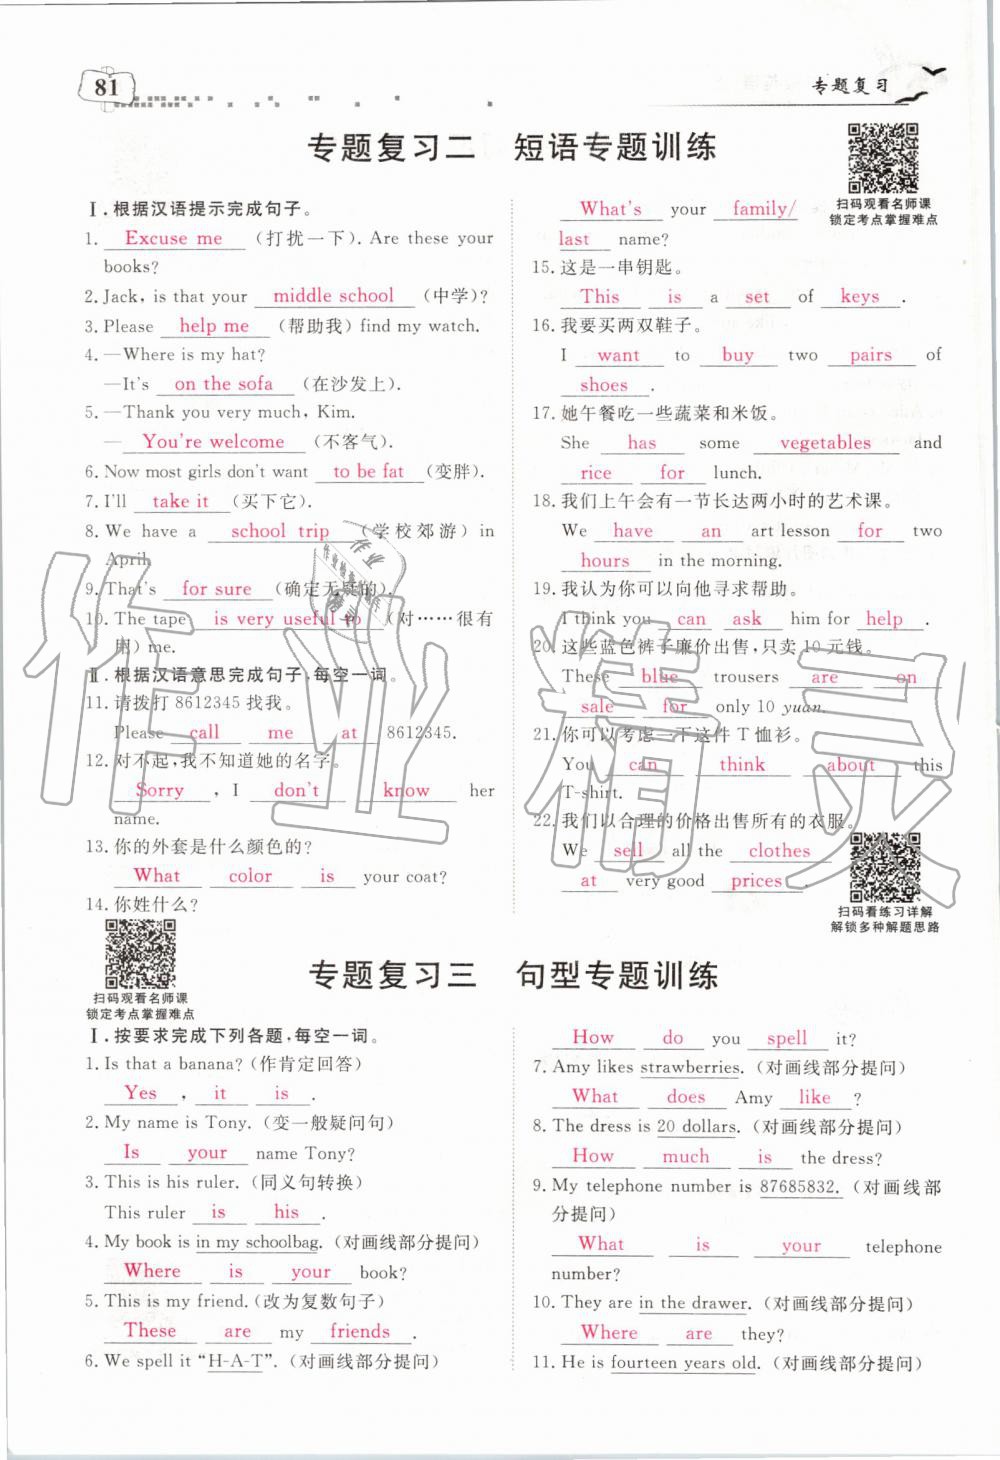 81
专题复习
专题复习二 短语专题训练
扫码观看名师课
锁定考点掌握难点
Ⅰ.根据汉语提示完成句子。
1. Excuse me (打扰一下). Are these your
books?
2. Jack, is that your middle school (中学)?
3. Please help me (帮助我) find my watch.
4. —Where is my hat?
—It's on the sofa (在沙发上).
5. —Thank you very much, Kim.
— You're welcome (不客气).
6. Now most girls don't want to be fat (变胖).
7. I'll take it (买下它).
8. We have a school trip (学校郊游) in
April.
9. That's for sure (确定无疑的).
10. The tape is very useful to (对……很有
用) me.
Ⅱ.根据汉语意思完成句子,每空一词。
11. 请拨打 8612345 找我。
Please call me at 8612345.
12. 对不起,我不知道她的名字。
Sorry , I don't know her
name.
13. 你的外套是什么颜色的?
What color is your coat?
14. 你姓什么?
What's your family/
last name?
15. 这是一串钥匙。
This is a set of keys .
16. 我要买两双鞋子。
I want to buy two pairs of
shoes .
17. 她午餐吃一些蔬菜和米饭。
She has some vegetables and
rice for lunch.
18. 我们上午会有一节长达两小时的艺术课。
We have an art lesson for two
hours in the morning.
19. 我认为你可以向他寻求帮助。
I think you can ask him for help .
20. 这些蓝色裤子廉价出售,只卖 10 元钱。
These blue trousers are on
sale for only 10 yuan.
21. 你可以考虑一下这件 T 恤衫。
You can think about this
T-shirt.
22. 我们以合理的价格出售所有的衣服。
We sell all the clothes
at very good prices .
扫码看练习详解
解锁多种解题思路
扫码观看名师课
锁定考点掌握难点
专题复习三 句型专题训练
Ⅰ.按要求完成下列各题,每空一词。
1. Is that a banana? (作肯定回答)
Yes , it is .
2. My name is Tony. (变一般疑问句)
Is your name Tony?
3. This is his ruler. (同义句转换)
This ruler is his .
4. My book is in my schoolbag. (对画线部分提问)
Where is your book?
5. This is my friend. (改为复数句子)
These are my friends .
6. We spell it “H-A-T”. (对画线部分提问)
How do you spell it?
7. Amy likes strawberries. (对画线部分提问)
What does Amy like ?
8. The dress is 20 dollars. (对画线部分提问)
How much is the dress?
9. My telephone number is 87685832. (对画线部
分提问)
What is your telephone
number?
10. They are in the drawer. (对画线部分提问)
Where are they?
11. He is fourteen years old. (对画线部分提问)
作业精灵